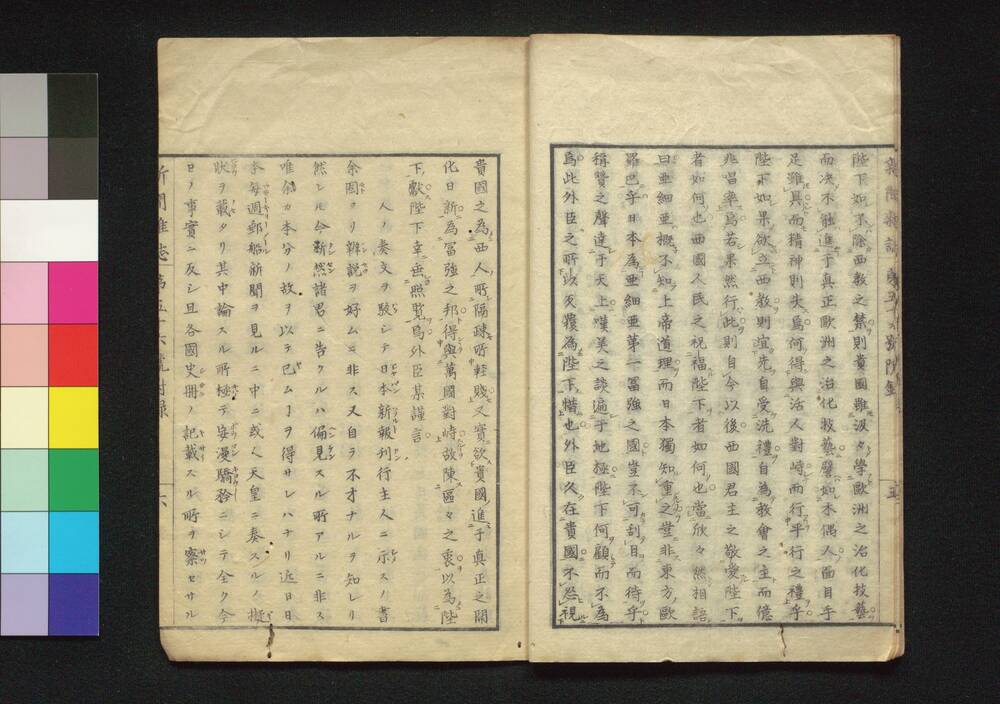 陛下如不除西教之禁則貴國雖汲々學歐洲之治化技藝
而决不能進于真正歐洲之治化技藝譬如木偶人面目手
足雖具而精神則失焉何得與活人對峙而行平行之禮乎
陛下如果欲立西教則宜先自受洗禮自為教會之主而億
兆唱率焉若果然行此則自今以後西國君主之敬愛陛下
者如何也西國人民之祝福陛下者如何也當欣々然相語
曰亜細亜概不知上帝道理而日本獨知重之豈非東方歐
羅巴乎日本為亜細亜第一冨強之國豈不可刮目而待乎
稱賛之聲達于天上嘆美之談遍于地極陛下何顧而不為
焉此外臣之所以反覆為陛下惜也外臣久在貴國不忍視
新聞雜誌 第五十六號附録 六
貴國之為西人所隔疎所輕賤又實欲貴國進于真正之開
化日新為冨強之邦得與萬國對峙故陳區々之衷以為陛
下獻陛下幸垂照覧焉外臣某謹言
人ノ奏文ヲ駁シテ日本新報刊行主人ニ示スノ書
余固ヨリ辨説ヲ好ムニ非ス又自ラ不才ナルヲ知レリ
然シトモ今断然諸君ニ告クルハ偏見スル所アルニ非ス
唯余カ本分ノ故ヲ以テ已ムヿヲ得サレハナリ近日日
本毎週郵船新聞ヲ見ルニ中ニ或人天皇ニ奏スルノ擬
状ヲ載タリ其中論スル所極テ妄漫驕矜ニシテ全ク今
日ノ事實ニ反シ且各國史冊ノ記載スル所ヲ察セサル